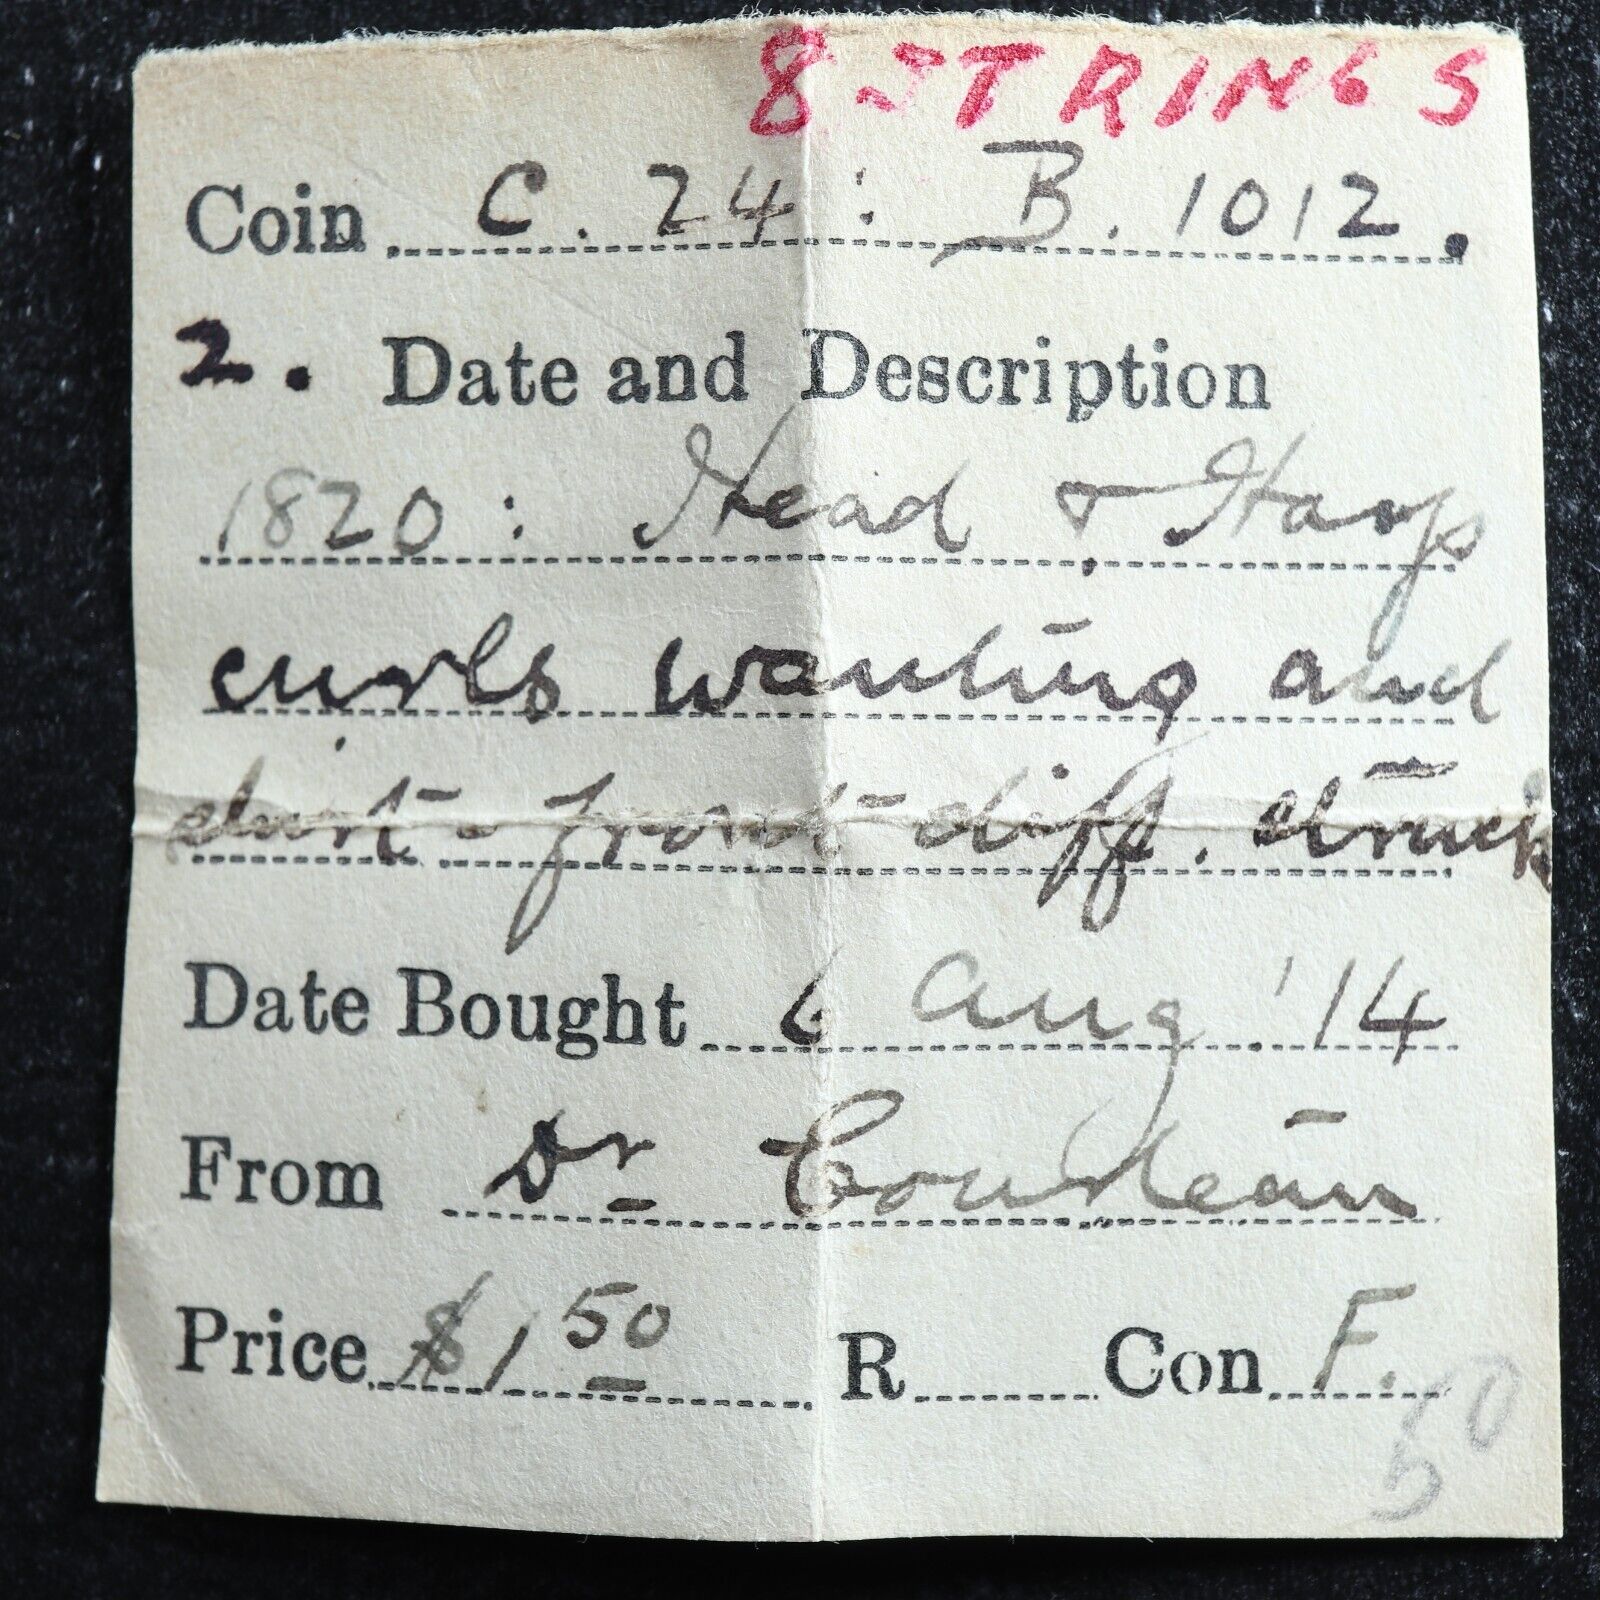 8 STRINGS
Coin C. 24 : B. 1012.
2. Date and Description
1820 : Head & Harp
curls wanting and
shirt-front diff. struck
Date Bought 6 Aug '14
From Dr Courteau
Price $1 50 R Con F.
50